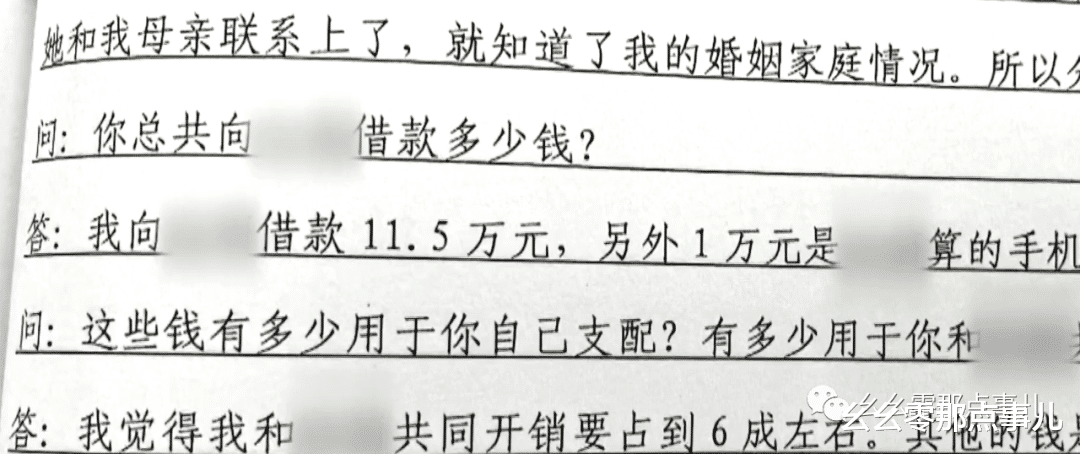 她和我母亲联系上了，就知道了我的婚姻家庭情况。所以
问：你总共向 借款多少钱？
答：我向 借款 11.5 万元，另外 1 万元是 算的手机
问：这些钱有多少用于你自己支配？有多少用于你和
答：我觉得我和 共同开销要占到 6 成左右。其他的钱是
幺幺零那点事儿